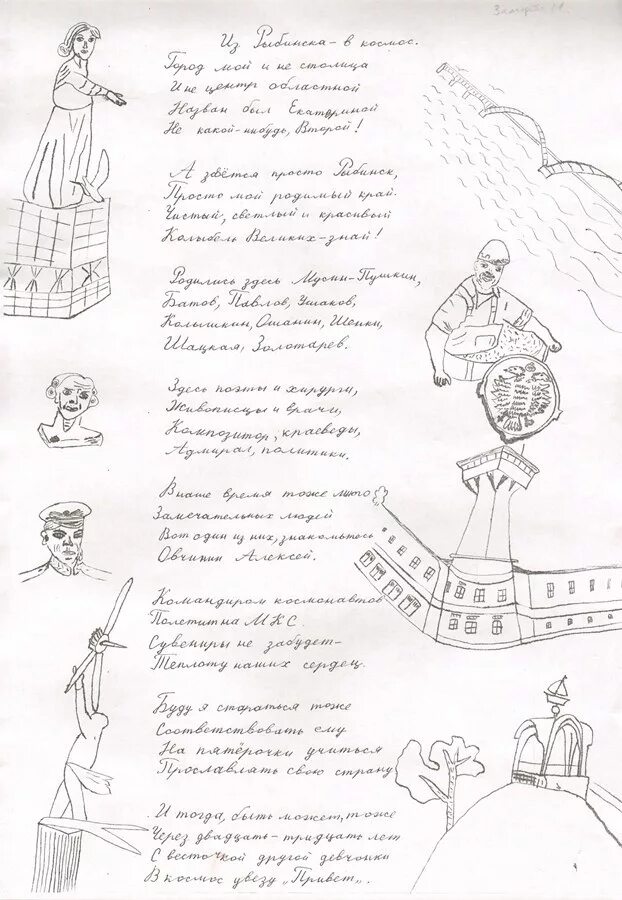 Из Рыбинска - в космос.
Город мой и не столица
И не центр областной
Назван был Екатериной
Не какой-нибудь, Второй!
А звётся просто Рыбинск,
Просто мой родимый край.
Чистый, светлый и красивый
Колыбель Великих - знай!
Родились здесь Мусин-Пушкин,
Батов, Павлов, Ушаков,
Колышкин, Ошанин, Шенки,
Шацкая, Золотарев.
Здесь поэты и хирурги,
Живописцы и врачи,
Композитор, краеведы,
Адмирал, политики.
В наше время тоже много
Замечательных людей
Вот один из них, знакомьтесь
Овчинин Алексей.
Командиром космонавтов
Полетит на МКС.
Сувениры не забудет-
Теплоту наших сердец.
Буду я стараться тоже
Соответствовать ему
На пятёрочки учиться
Прославлять свою страну
И тогда, быть может, тоже
Через двадцать - тридцать лет
С весточкой другой девчонки
В космос увезу „Привет„.